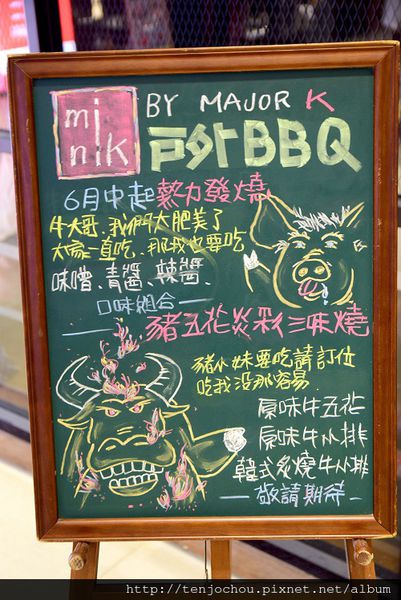 mi
nik
BY MAJOR K
戶外BBQ
6月中起熱力發燒
牛大哥,我們大肥美了
大家一直吃,那我也要吃
味噌、青醬、辣醬、
口味組合
豬五花炎彩三味燒
豬小妹要吃請訂位
吃我沒那容易
原味牛五花
原味牛小排
韓式炙燒牛小排
敬請期待
http://tenjochou.pixnet.net/album